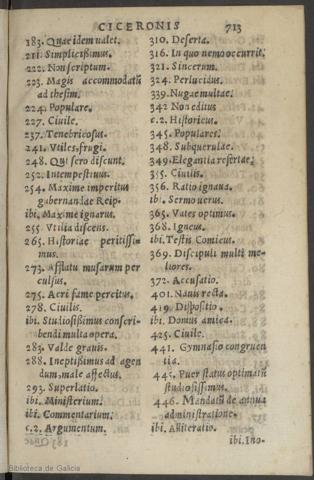 CICERONIS 713
183. Quae idem ualet.
211. Simplicißimus.
222. Non scriptum.
223. Magis accommodatū
ad thesim.
224. Populare.
227. Ciuile.
237. Tenebricosus.
241. Vtiles, frugi.
248. Qui sero discunt.
252. Intempestiuus.
254. Maxime imperitus
gubernandae Reip.
ibi. Maxime ignarus.
255. Vtilia discens.
265. Historiae peritissi=
mus.
273. Afflatu musarum per
culsus.
275. Acri fame percitus.
278. Ciuilis.
ibi. Studiosißimus conscri-
bendi multa opera.
285. Valde grauis.
288. Ineptißimus ad agen
dum, male affectus.
293. Superlatio.
ibi. Ministerium.
ibi. Commentarium.
c.2. Argumentum.
310. Deserta.
316. In quo nemo occurrit.
321. Sincerum.
324. Perlucidus.
339. Nugae multae.
342 Non editus
c.2. Historicus.
345. Populares.
348. Subquerulae.
349. Elegantia refertae.
355. Ciuilis.
356. Ratio ignaua.
ibi. Sermo uerus.
365. Vates optimus.
368. Igneus.
ibi. Testis Comicus.
369. Discipuli multi me-
liores.
372. Accusatio.
401. Nauis recta.
419. Dispositio.
ibi. Domus amica.
425. Ciuile.
441. Gymnasio congruen
tia.
445. Puer status optimatū
studiosissimus.
446. Mandatū de annua
administratione.
ibi. Alliteratio.
ibi. Ino-
Biblioteca de Galicia